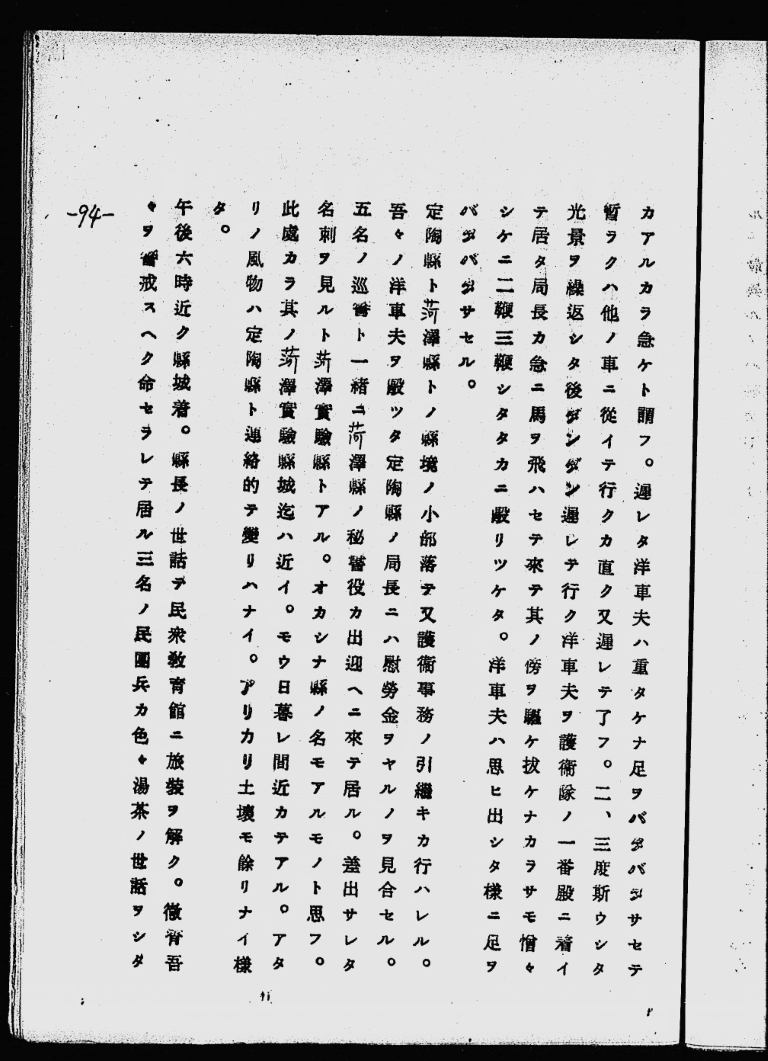 カアルカラ急ケト謂フ。遲レタ洋車夫ハ重タケナ足ヲバタバタサセテ
暫ラクハ他ノ車ニ從イテ行クカ直ク又遲レテ了フ。二、三度斯ウシタ
光景ヲ繰返シタ後ダンダン遲レテ行ク洋車夫ヲ護衞隊ノ一番殿ニ着イ
テ居タ局長カ急ニ馬ヲ飛ハセテ來テ其ノ傍ヲ驅ケ拔ケナカラサモ憎々
シケニ二鞭三鞭シタタカニ毆リツケタ。洋車夫ハ思ヒ出シタ樣ニ足ヲ
バタバタサセル。
定陶縣ト菏澤縣トノ縣境ノ小部落テ又護衞事務ノ引繼キカ行ハレル。
吾々ノ洋車夫ヲ毆ツタ定陶縣ノ局長ニハ慰勞金ヲヤルノヲ見合セル。
五名ノ巡警ト一緒ニ菏澤縣ノ秘書役カ出迎ヘニ來テ居ル。差出サレタ
名刺ヲ見ルト菏澤實驗縣トアル。オカシナ縣ノ名モアルモノト思フ。
此處カラ其ノ菏澤實驗縣城迄ハ近イ。モウ日暮レ間近カテアル。アタ
リノ風物ハ定陶縣ト連絡的テ變リハナイ。アリカリ土壤モ餘リナイ樣
タ。
午後六時近ク縣城着。縣長ノ世話テ民衆敎育館ニ旅裝ヲ解ク。徹宵吾
々ヲ警戒スヘク命セラレテ居ル三名ノ民團兵カ色々湯茶ノ世話ヲシタ
-94-